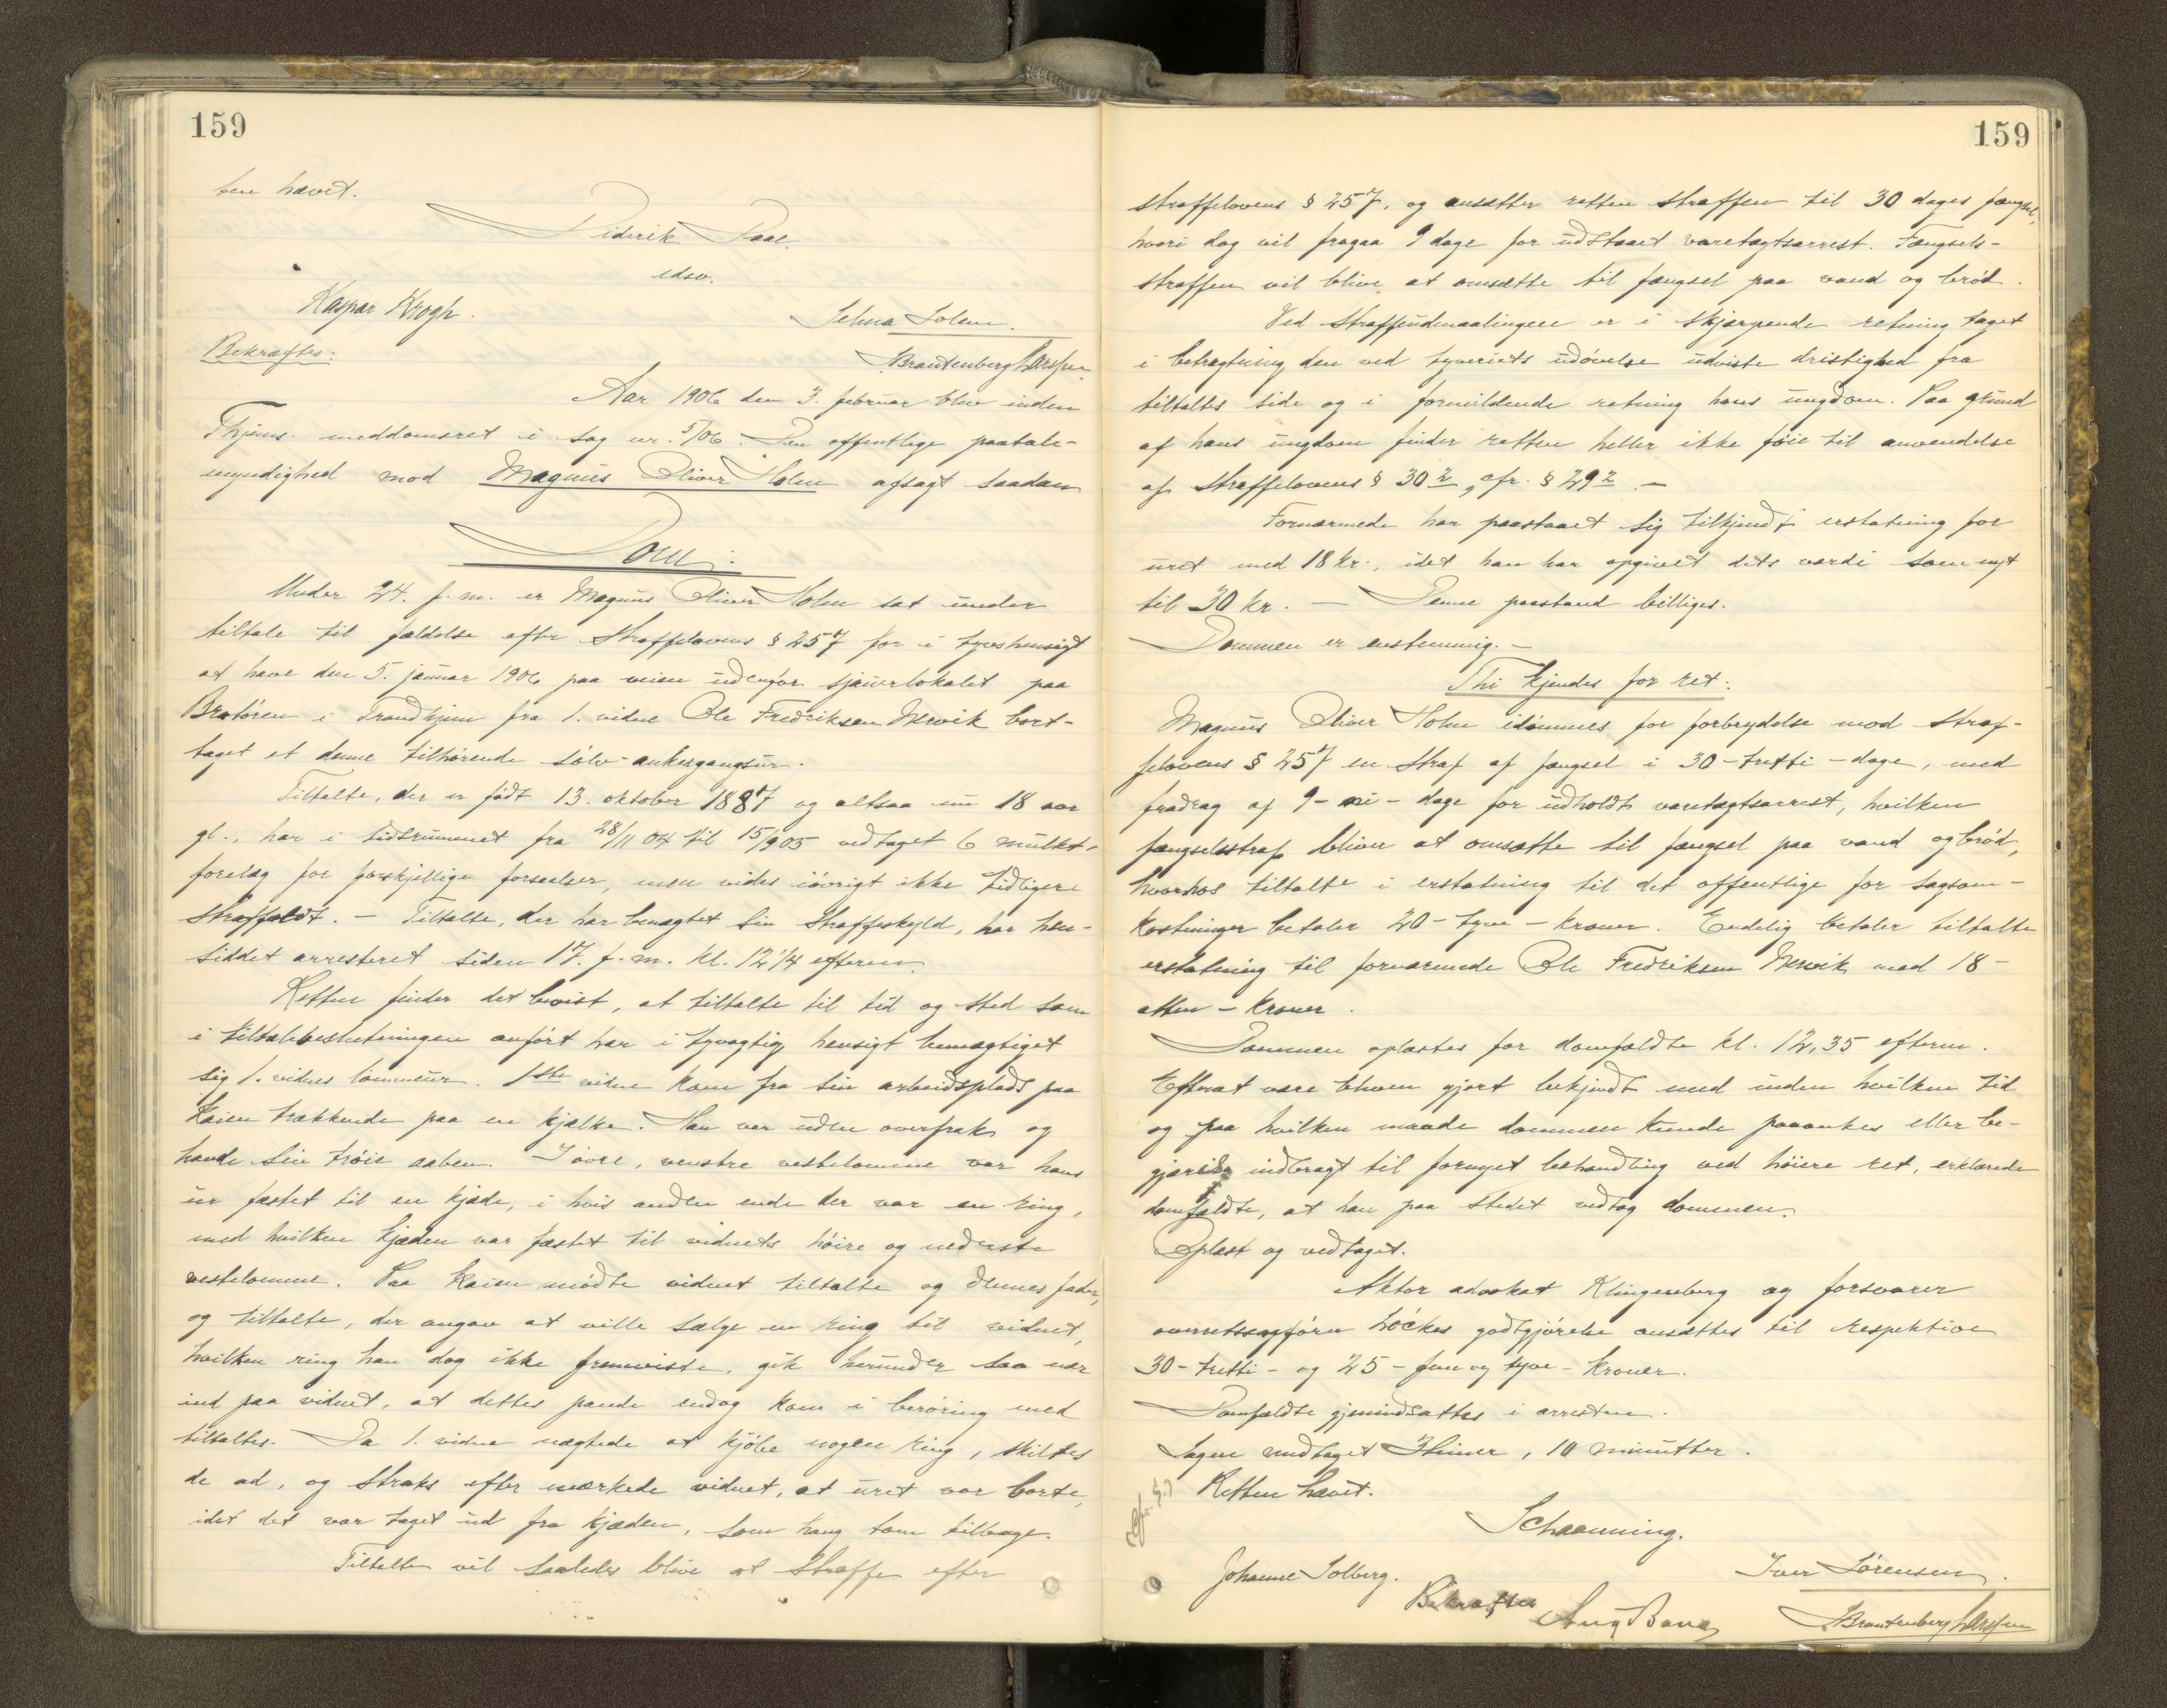 159
ben hævet.
Diderik Paae.
edsv.
Kaspar Krogh.
Selma Solem.
Bekræftes:
Brantenberg Larssen
Aar 1906 den 3. februar blev inden
Thjems. meddomsret i sag nr. 5/06. Den offentlige paatale-
myndighed mod Magnus Oliver Holm afsagt saadan
Dom:
Under 24. f.m. er Magnus Oliver Holm sat under
tiltale til fældelse efter straffelovens § 257 for i tyvshensigt
at have den 5. januar 1906 paa veien udenfor sjauerlokalet paa
Bratören i Trondhjem fra 1. vidne Ole Fredriksen Mervik bort-
taget et denne tilhörende sölv-ankergangsur.
Tiltalte, der er födt 13. oktober 1887 og altsaa nu 18 aar
gl., har i tidsrummet fra 28/11 04 til 15/9 05 vedtaget 6 mulkt-
forelæg for forskjellige forseelser, men vides iövrigt ikke tidligere
straffældt. - Tiltalte, der har benægtet sin straffeskyld, har hen-
siddet arresteret siden 17. f.m. kl. 12 1/4 efterm.
Retten finder det bevist, at tiltalte til tid og sted som
i tiltalebeslutningen anfört har i tyvagtig hensigt bemægtiget
sig 1. vidnes lommeur. 1ste vidne kom fra sin arbeidsplads paa
Kaien trækkende paa en kjælke. Han var uden overfrak og
havde sin tröie aaben. I övre, venstre vestelomme var hans
ur fæstet til en kjæde, i hvis anden ende der var en ring,
med hvilken kjæden var fæstet til vidnets höire og nederste
vestelomme. Paa Kaien mödte vidnet tiltalte og dennes fader,
og tiltalte, der angav at ville sælge en ring til vidnet,
hvilken ring han dog ikke fremviste, gik herunder saa nær
ind paa vidnet, at dettes pande endog kom i beröring med
tiltaltes. Da 1. vidne nægtede at kjöbe nogen ring, skiltes
de ad, og straks efter mærkede vidnet, at uret var borte,
idet det var taget ud fra kjæden, som hang tom tilbage.
Tiltalte vil saaledes blive at straffe efter
159
straffelovens § 257, og ansætter retten straffen til 30 dages fængsel,
hvori dog vil fragaa 9 dage for udstaaet varetægtsarrest. Fængsels-
straffen vil blive at omsætte til fængsel paa vand og bröd.
Ved straffeudmaalingen er i skjærpende retning taget
i betragtning den ved tyveriets udövelse udviste dristighed fra
tiltaltes side og i formildende retning hans ungdom. Paa grund
af hans ungdom finder retten heller ikke föie til anvendelse
af straffelovens § 30 2, cfr. § 29 2. -
Fornærmede har paastaaet sig tilkjendt erstatning for
uret med 18 kr., idet han har opgivet dets værdi som nyt
til 30 kr. - Denne paastand billiges.
Dommen er enstemmig. -
Thi kjendes for ret:
Magnus Oliver Holm idömmes for forbrydelse mod straf-
felovens § 257 en straf af fængsel i 30 - tretti - dage, med
fradrag af 9 - ni - dage for udholdt varetægtsarrest, hvilken
fængselsstraf bliver at omsætte til fængsel paa vand og bröd,
hvorhos tiltalte i erstatning til det offentlige for sagsom-
kostninger betaler 20 - tyve - kroner. Endelig betaler tiltalte
erstatning til fornærmede Ole Fredriksen Mervik med 18 -
atten - kroner.
Dommen oplæstes for domfældte kl. 12,35 efterm.
Efterat være bleven gjort bekjendt med inden hvilken tid
og paa hvilken maade dommen kunde paaankes eller be-
gjæres indbragt til fornyet behandling ved höiere ret, erklærede
domfældte, at han paa stedet vedtog dommen.
Oplæst og vedtaget.
Aktor advokat Klingenberg og forsvarer
overretssagförer Höckes godtgjörelse ansættes til respektive
30 - tretti - og 25 - fem og tyve - kroner.
Domfældte gjenindsættes i arresten.
Sagen medtaget 3 timer, 10 minutter.
Retten hævet.
Schaanning.
Johanne Solberg.
Iver Sörensen.
Bekræftes
Brantenberg Larssen